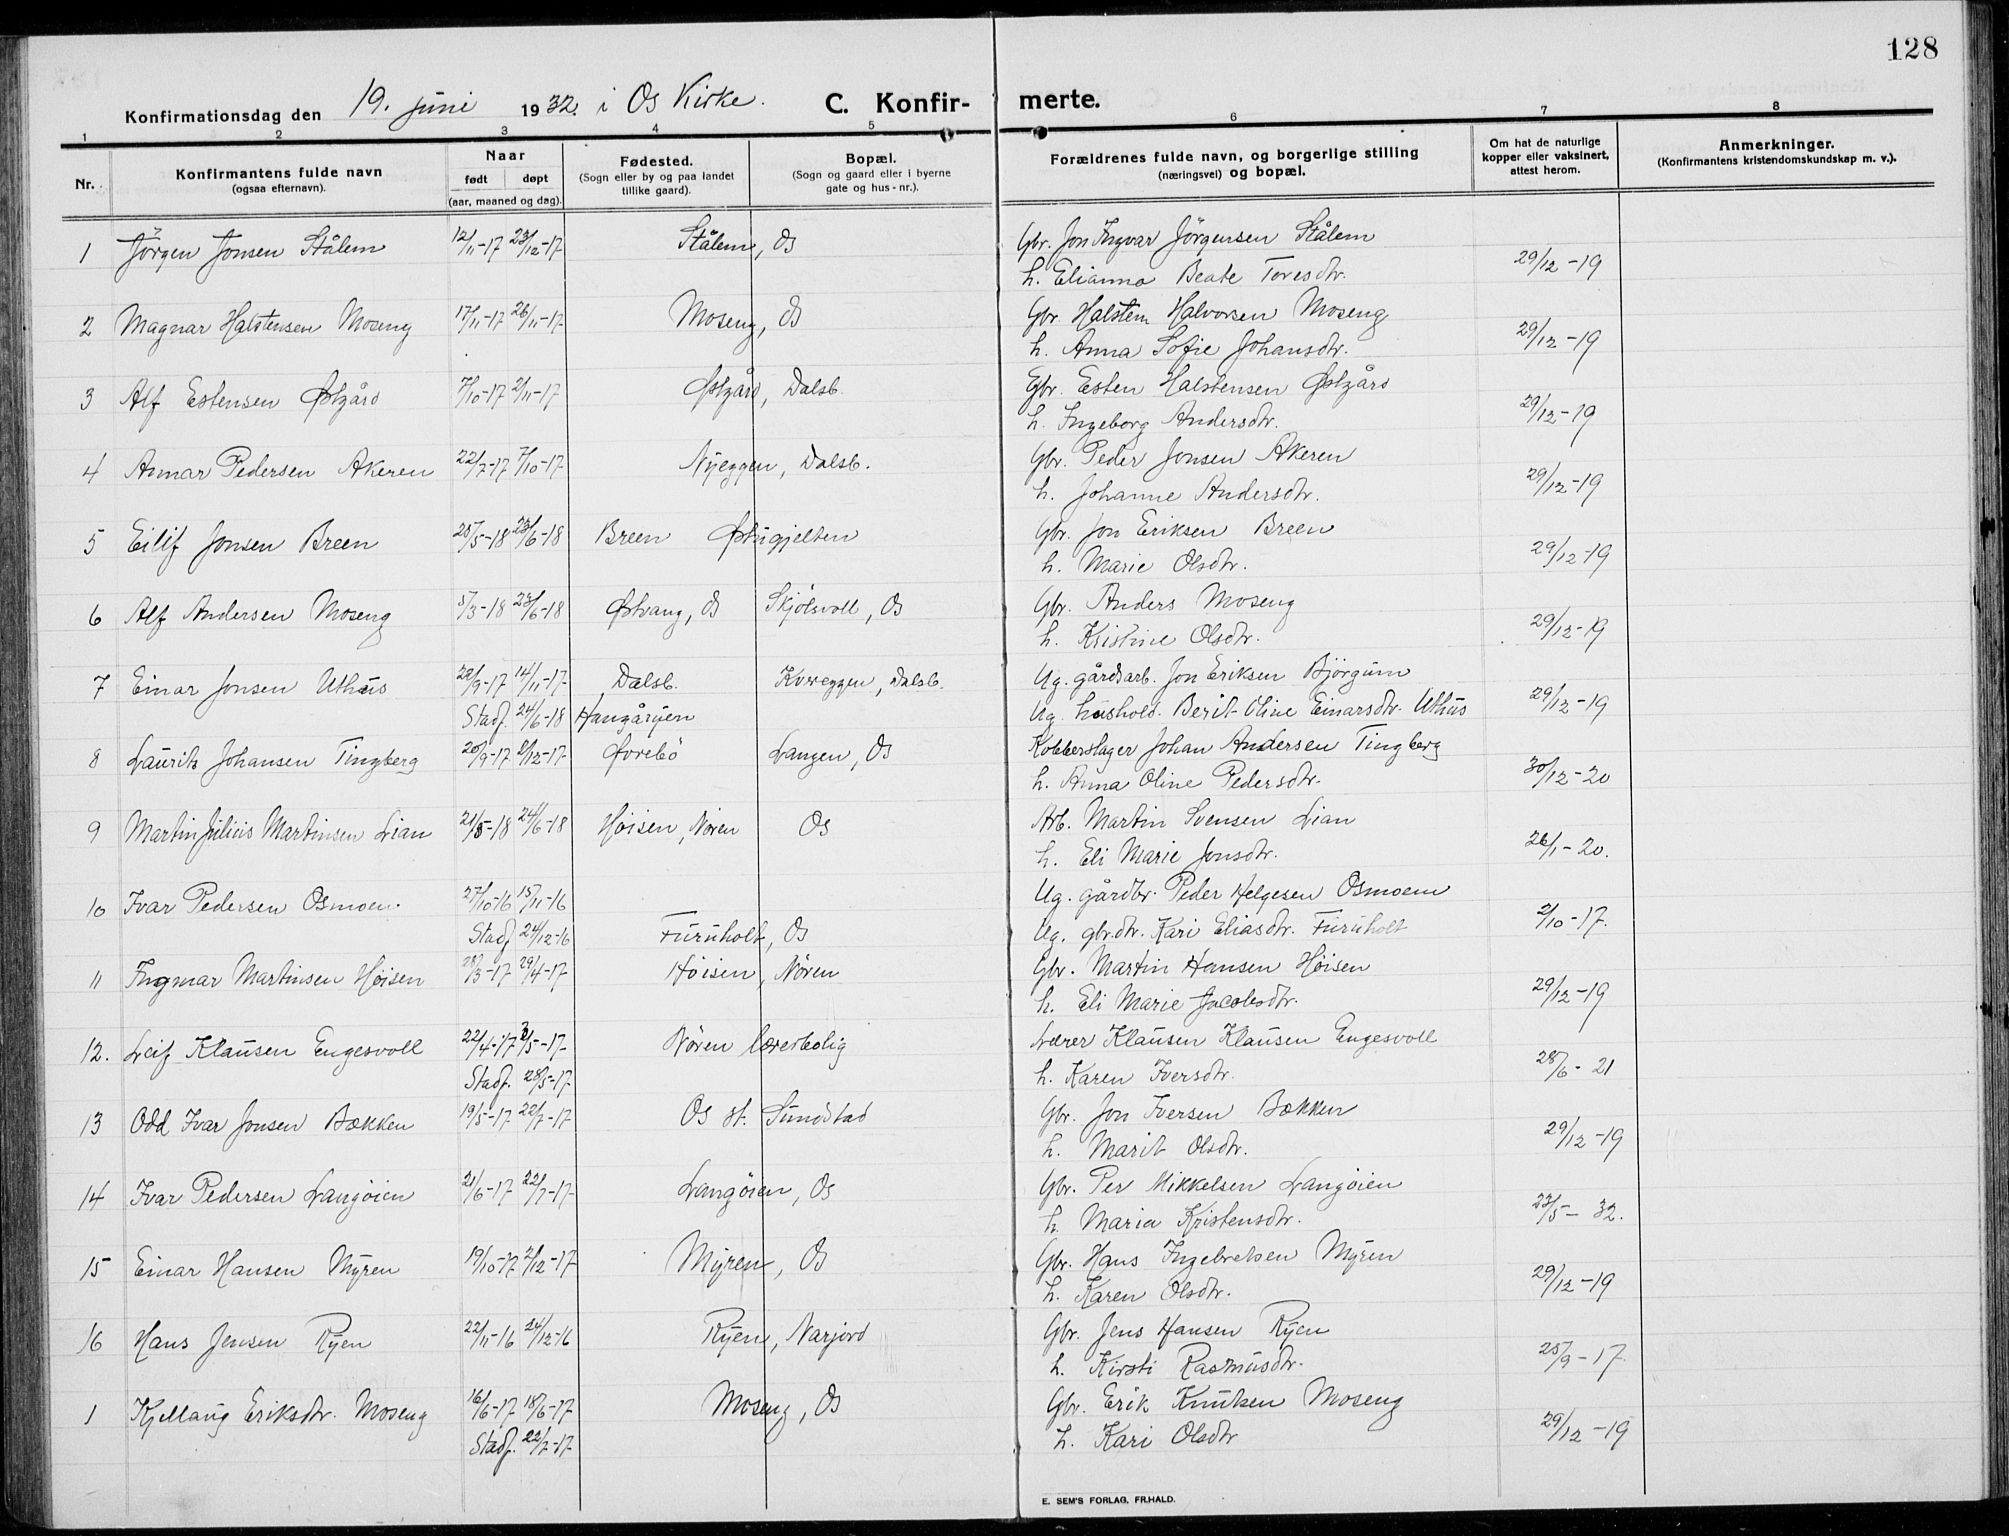 128
Konfirmationsdag den 19. juni 1932. i Os Kirke. C. Konfirmerte.
1 2 3 4 5 6 7 8
Nr. Konfirmantens fulde navn (ogsaa efternavn). Naar født døpt (aar, maaned og dag). Fødested. (Sogn eller by og paa landet tillike gaard). Bopæl. (Sogn og gaard eller i byerne gate og hus-nr.). Forældrenes fulde navn, og borgerlige stilling (næringsvei) og bopæl. Om hat de naturlige kopper eller vaksinert, attest herom. Anmerkninger. (Konfirmantens kristendomskundskap m. v.).
1 Jörgen Jonsen Stålem 12/11-17 23/12-17 Stålem, Os Gbr. Jon Ingvar Jörgensen Stålem
h. Elianna Beate Toresdtr. 29/12-19
2 Magnar Halstensen Moseng 17/11-17 26/11-17 Moseng, Os Gbr. Halsten Halvorsen Moseng
h. Anna Sofie Johansdtr. 29/12-19
3 Alf Estensen Østgård 7/10-17 2/11-17 Østgård, Dalsb. Gbr. Esten Halstensen Østgård
h. Ingeborg Andersdtr. 29/12-19
4 Anmar Pedersen Akeren 22/7-17 7/10-17 Nyeggen, Dalsb. Gbr. Peder Jonsen Akeren
h. Johanne Andersdtr. 29/12-19
5 Eilif Jonsen Breen 25/5-18 23/6-18 Breen Østugjelten Gbr. Jon Eriksen Breen
h. Marie Olsdtr. 29/12-19
6 Alf Andersen Moseng 5/3-18 23/6-18 Østvang, Os Skjölsvoll, Os Gbr. Anders Moseng
h. Kristine Olsdtr. 29/12-19
7 Einar Jonsen Uthus 22/9-17 14/11-17 Dalsb. Kvereggen, Dalsb. Ug. gårdsarb. Jon Eriksen Björgum
Stadf. 24/6-18 Haugåryen Ug. hushold. Berit Oline Einarsdtr. Uthus 29/12-19
8 Laurits Johansen Tingberg 20/9-17 2/12-17 Øvrebö Langen, Os Kobberslager Johan Andersen Tingberg
h. Anna Oline Pedersdtr. 30/12-20
9 Martin Julius Martinsen Lian 21/5-18 24/6-18 Höisen, Nören Os Arb. Martin Svensen Lian
h. Eli Marie Jonsdtr. 26/1-20.
10 Ivar Pedersen Osmoen. 27/10-16 15/11-16 Ug. gårdbr. Peder Helgesen Osmoen
Stadf 24/12-16 Furuholt, Os Ug. gbr.dtr. Kari Eliasdtr. Furuholt 2/10-17.
11 Ingmar Martinsen Höisen 28/3-17 29/4-17 Höisen, Nören Gbr. Martin Hansen Höisen
h. Eli Marie Jacobsdtr. 29/12-19
12. Leif Klausen Engesvoll 22/4-17 3/5-17 Nören lærerbolig Lærer Klausen Klausen Engesvoll
Stadf. 28/5-17 h. Karen Iversdtr. 28/6-21
13 Odd Ivar Jonsen Bækken 19/5-17 22/7-17 Os st. Sundstad Gbr. Jon Iversen Bækken
h. Marit Olsdtr. 29/12-19
14 Ivar Pedersen Langöien 21/6-17 22/7-17 Langöien, Os Gbr. Per Mikkelsen Langöien
h. Maria Kristensdtr. 23/5-32.
15 Einar Hansen Myren 19/10-17 2/12-17 Myren, Os Gbr. Hans Ingebretsen Myren
h. Karen Olsdtr. 29/12-19
16 Hans Jensen Ryen 22/11-16 24/12-16 Ryen, Narjord Gbr. Jens Hansen Ryen
h. Kirsti Rasmusdtr. 25/9-17
1 Kjellaug Eriksdtr. Moseng 16/6-17 18/6-17 Moseng, Os Gbr. Erik Knutsen Moseng
Stadf. 22/7-17 h. Kari Olsdtr 29/12-19
E. SEM'S FORLAG, FR.HALD.